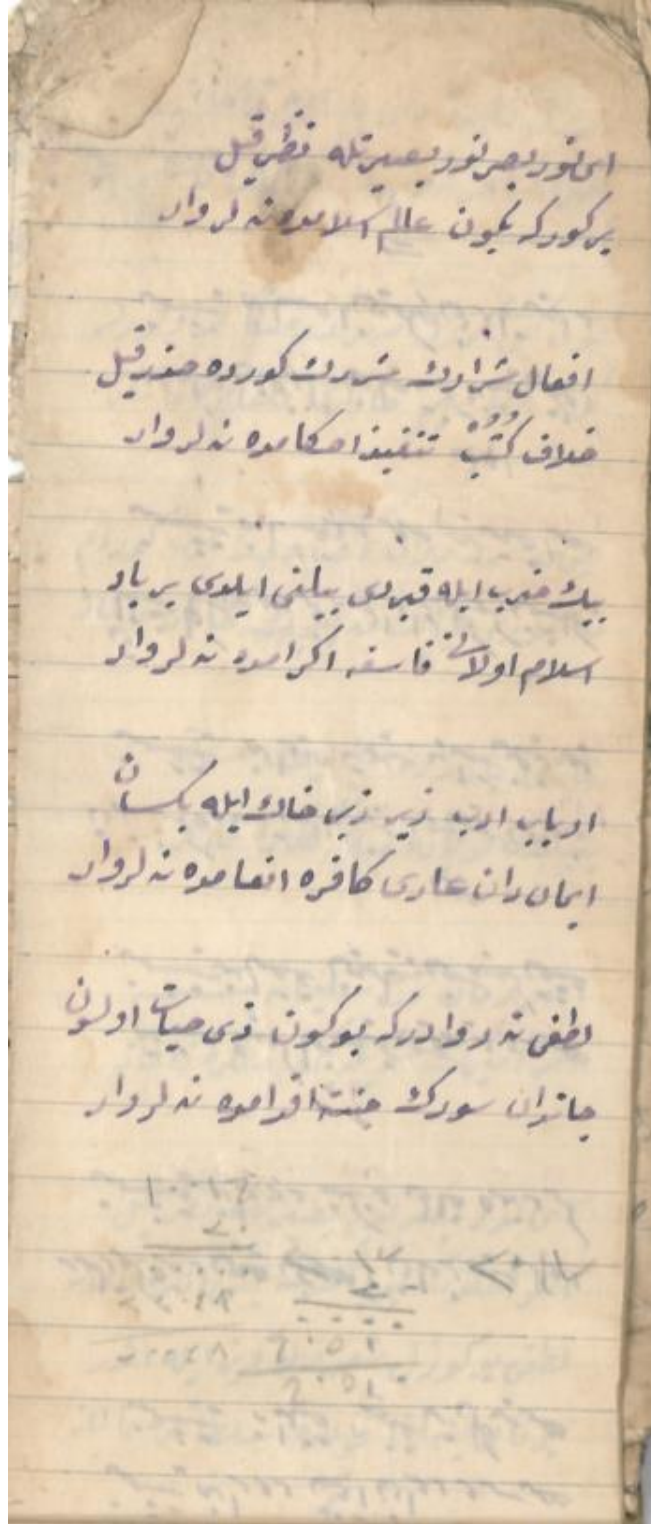 ای نور بصر نور بصیرتله نظر قیل
بر کور که بکون عالم اسلامده نه لر وار
افعال شرارك شررك کورده حذر قیل
خلاف کتب تنفیذ احکامده نه لر وار
بيك ضرب ایله قیردی بیلنی ایلدی بر باد
اسلام اولانه فاسقه اکرامده نه لر وار
ارباب ادب زیر زبر خاك ایله یکسان
ایمان دان عاری کافره انعامده نه لر وار
لطفی نه روادرکه بوکون ذی حیات اولسون
جاندان سورك اقدامده نه لر وار